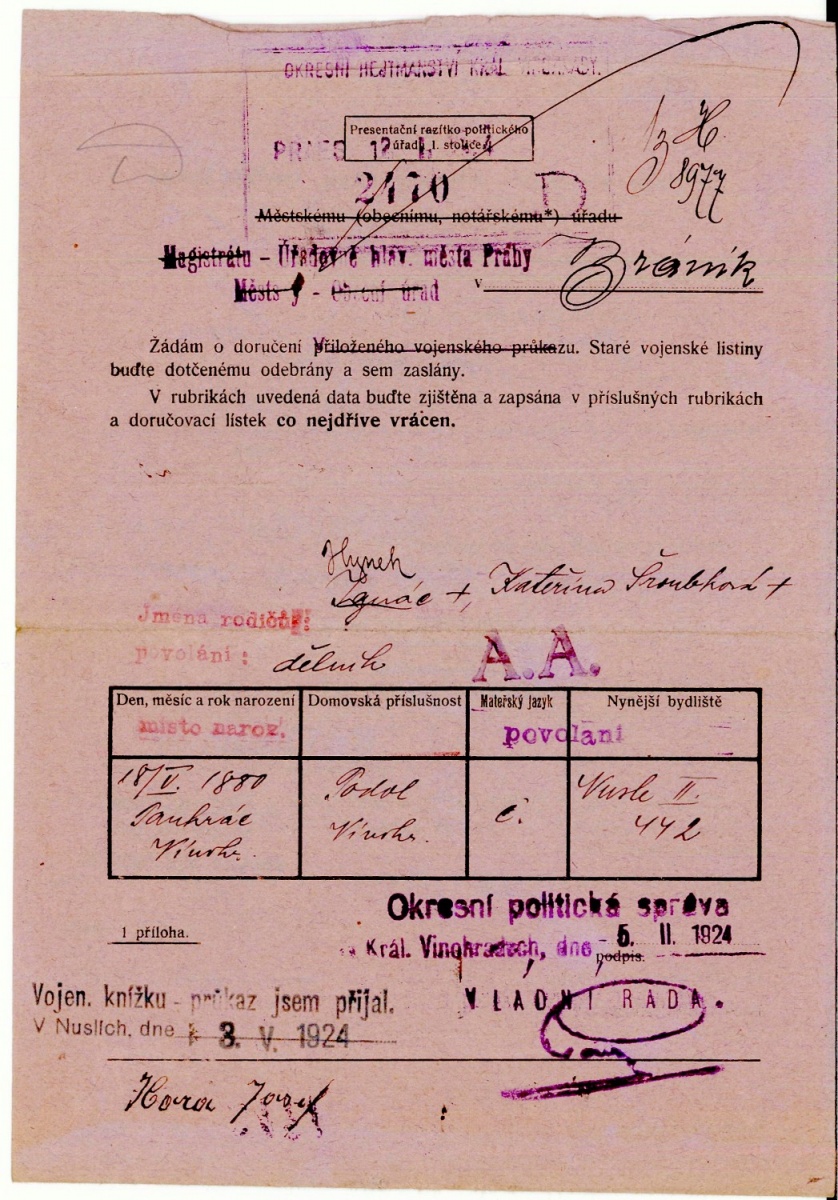 OKRESNÍ HEJTMANSTVÍ KRÁL. VINOHRADY.
Presentační razítko politického
úřadu I. stolice.
12
2170
D
H
8977
Městskému (obecnímu, notářskému*) úřadu
Magistrátu - Úřadovně hlav. města Prahy
Městs - Obecní úřad
v Bráník
Žádám o doručení přiloženého vojenského průkazu. Staré vojenské listiny
buďte dotčenému odebrány a sem zaslány.
V rubrikách uvedená data buďte zjištěna a zapsána v příslušných rubrikách
a doručovací lístek co nejdříve vrácen.
Hynek
Ignác +, Kateřina Šroubková +
Jmena rodičů:
povolání: dělník
A.A.
Den, měsíc a rok narození Domovská příslušnost Mateřský jazyk Nynější bydliště
místo naroz. povolání
18/V. 1880 Podol č. Nusle II.
Pankrác Vinohr. 442
Vinohr.
Okresní politická správa
1 příloha.
Král. Vinohradech, dne - 5. II. 1924
podpis.
Vojen. knížku - průkaz jsem přijal.
VLADNÍ RADA.
V Nuslích, dne 3. V. 1924
Hora Josef